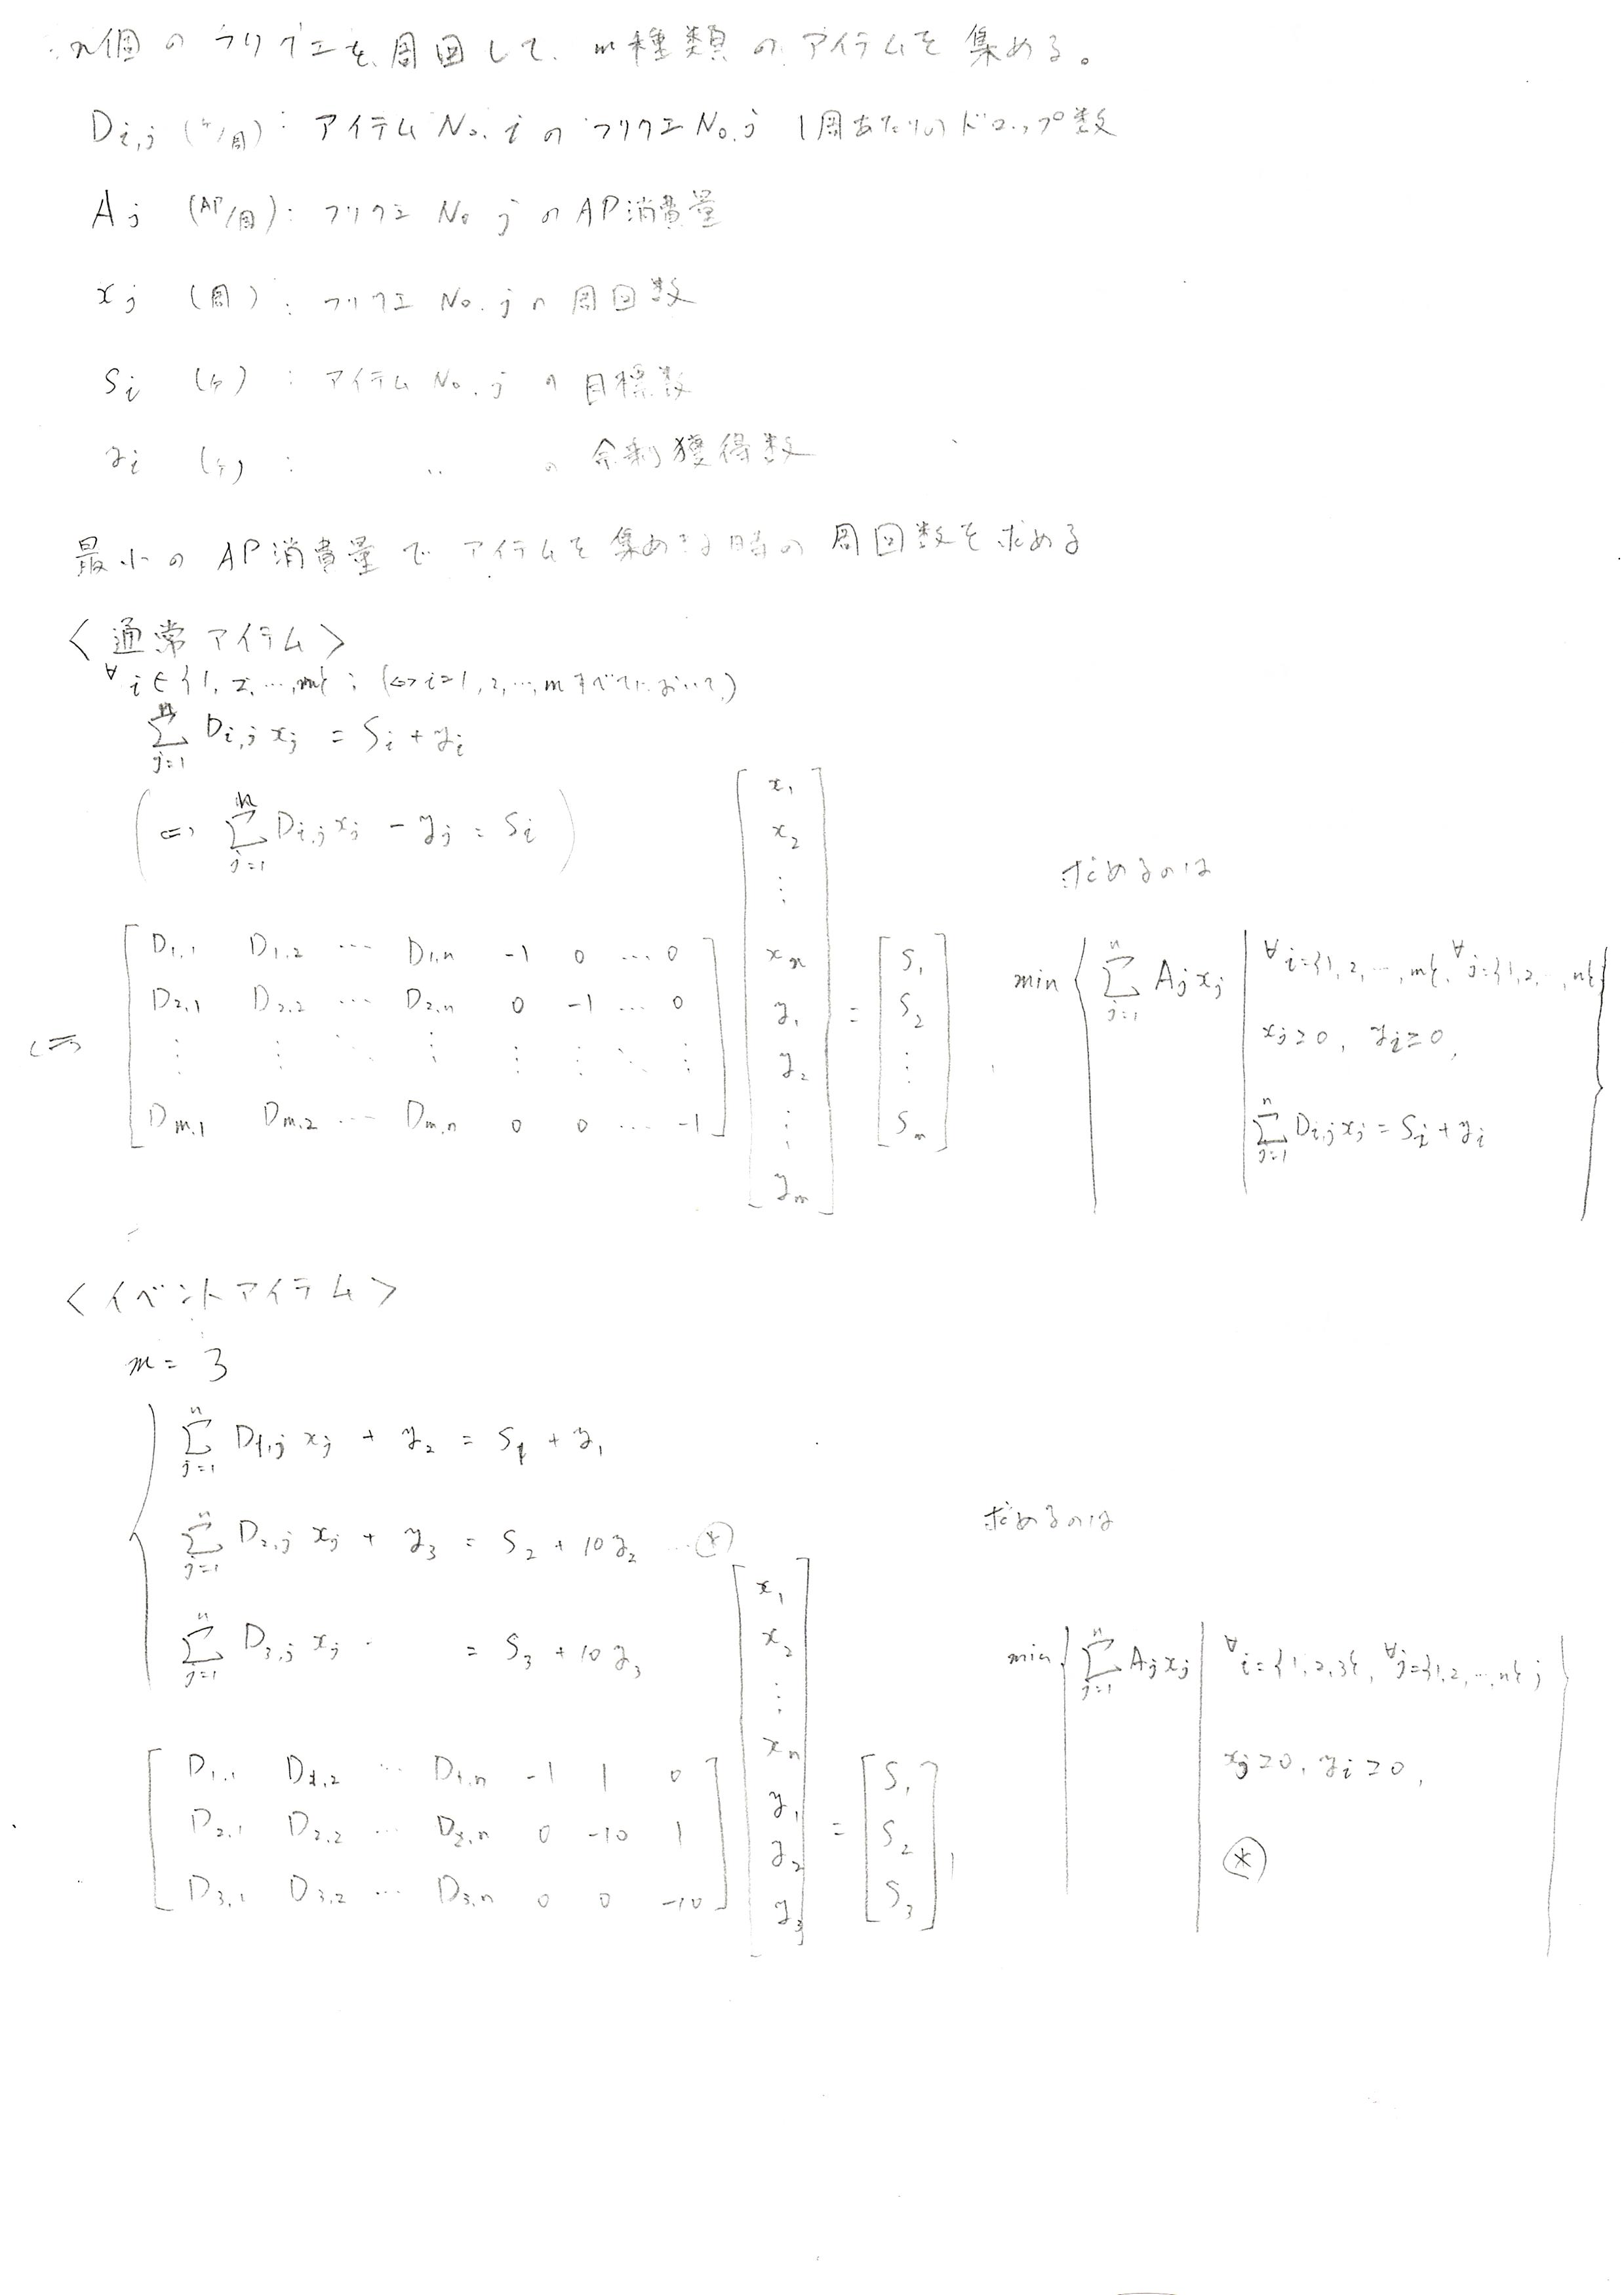 n個のフリクエを周回して、m種類のアイテムを集める。
D_{i,j} (ケ/周) : アイテム No. i の フリクエ No. j 1周あたりのドロップ数
A_j (AP/周) : フリクエ No. j の AP消費量
x_j (周) : フリクエ No. j の 周回数
S_i (ケ) : アイテム No. j の 目標数
y_i (ケ) : 〃 の 余剰獲得数
最小の AP消費量で アイテムを集める時の 周回数を求める
<通常アイテム>
∀i∈{1, 2, …, m} ; (⇔ i=1, 2, …, m すべてにおいて)
\sum_{j=1}^{n} D_{i,j} x_j = S_i + y_i
( ⇔ \sum_{j=1}^{n} D_{i,j} x_j - y_j = S_i )
⇔
[ D_{1,1} D_{1,2} … D_{1,n} -1 0 … 0
D_{2,1} D_{2,2} … D_{2,n} 0 -1 … 0
⋮ ⋮ ⋱ ⋮ ⋮ ⋮ ⋱ ⋮
D_{m,1} D_{m,2} … D_{m,n} 0 0 … -1 ]
[ x_1
x_2
⋮
x_n
y_1
y_2
⋮
y_m ]
=
[ S_1
S_2
⋮
S_m ]
求めるのは
min { \sum_{j=1}^{n} A_j x_j | ∀i={1, 2, …, m}, ∀j={1, 2, …, n}
x_j ≥ 0, y_i ≥ 0,
\sum_{j=1}^{n} D_{i,j} x_j = S_i + y_i }
<イベントアイテム>
m = 3
{ \sum_{j=1}^{n} D_{1,j} x_j + y_2 = S_1 + y_1
\sum_{j=1}^{n} D_{2,j} x_j + y_3 = S_2 + 10y_2 … (*)
\sum_{j=1}^{n} D_{3,j} x_j = S_3 + 10y_3
[ D_{1,1} D_{1,2} … D_{1,n} -1 1 0
D_{2,1} D_{2,2} … D_{2,n} 0 -10 1
D_{3,1} D_{3,2} … D_{3,n} 0 0 -10 ]
[ x_1
x_2
⋮
x_n
y_1
y_2
y_3 ]
=
[ S_1
S_2
S_3 ],
求めるのは
min { \sum_{j=1}^{n} A_j x_j | ∀i={1, 2, 3}, ∀j={1, 2, …, n} ;
x_j ≥ 0, y_i ≥ 0,
(*) }